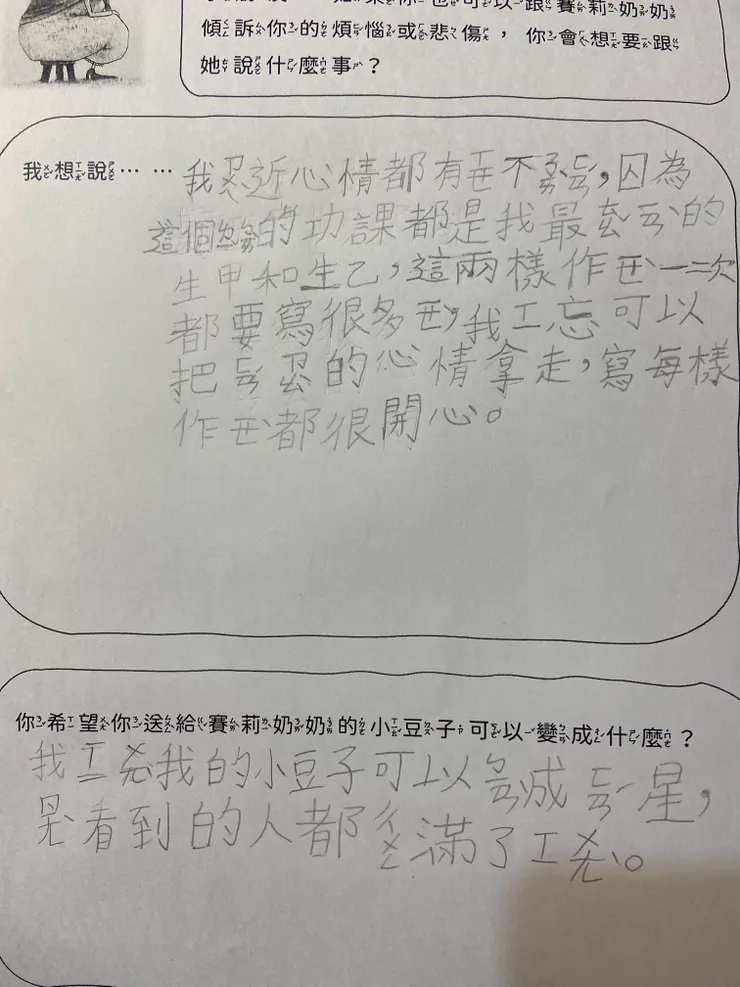 你也可以跟賽莉奶奶
傾訴你的煩惱或悲傷，你會想要跟
她說什麼事？
我想說……我ㄗㄨㄟ近心情都有不，因為
這個的功課都是我最的
生甲和生乙，這兩樣作ㄧㄝˋ一次
都要寫很多ㄧㄝˋ，我ㄒㄧ忘可以
把的心情拿走，寫每樣
作ㄧㄝˋ都很開心。
你希望你送給賽莉奶奶的小豆子可以變成什麼？
我ㄒㄧㄨㄤ我的小豆子可以ㄅㄧㄢ成星，
看到的人都滿了ㄒㄧㄨㄤˋ。